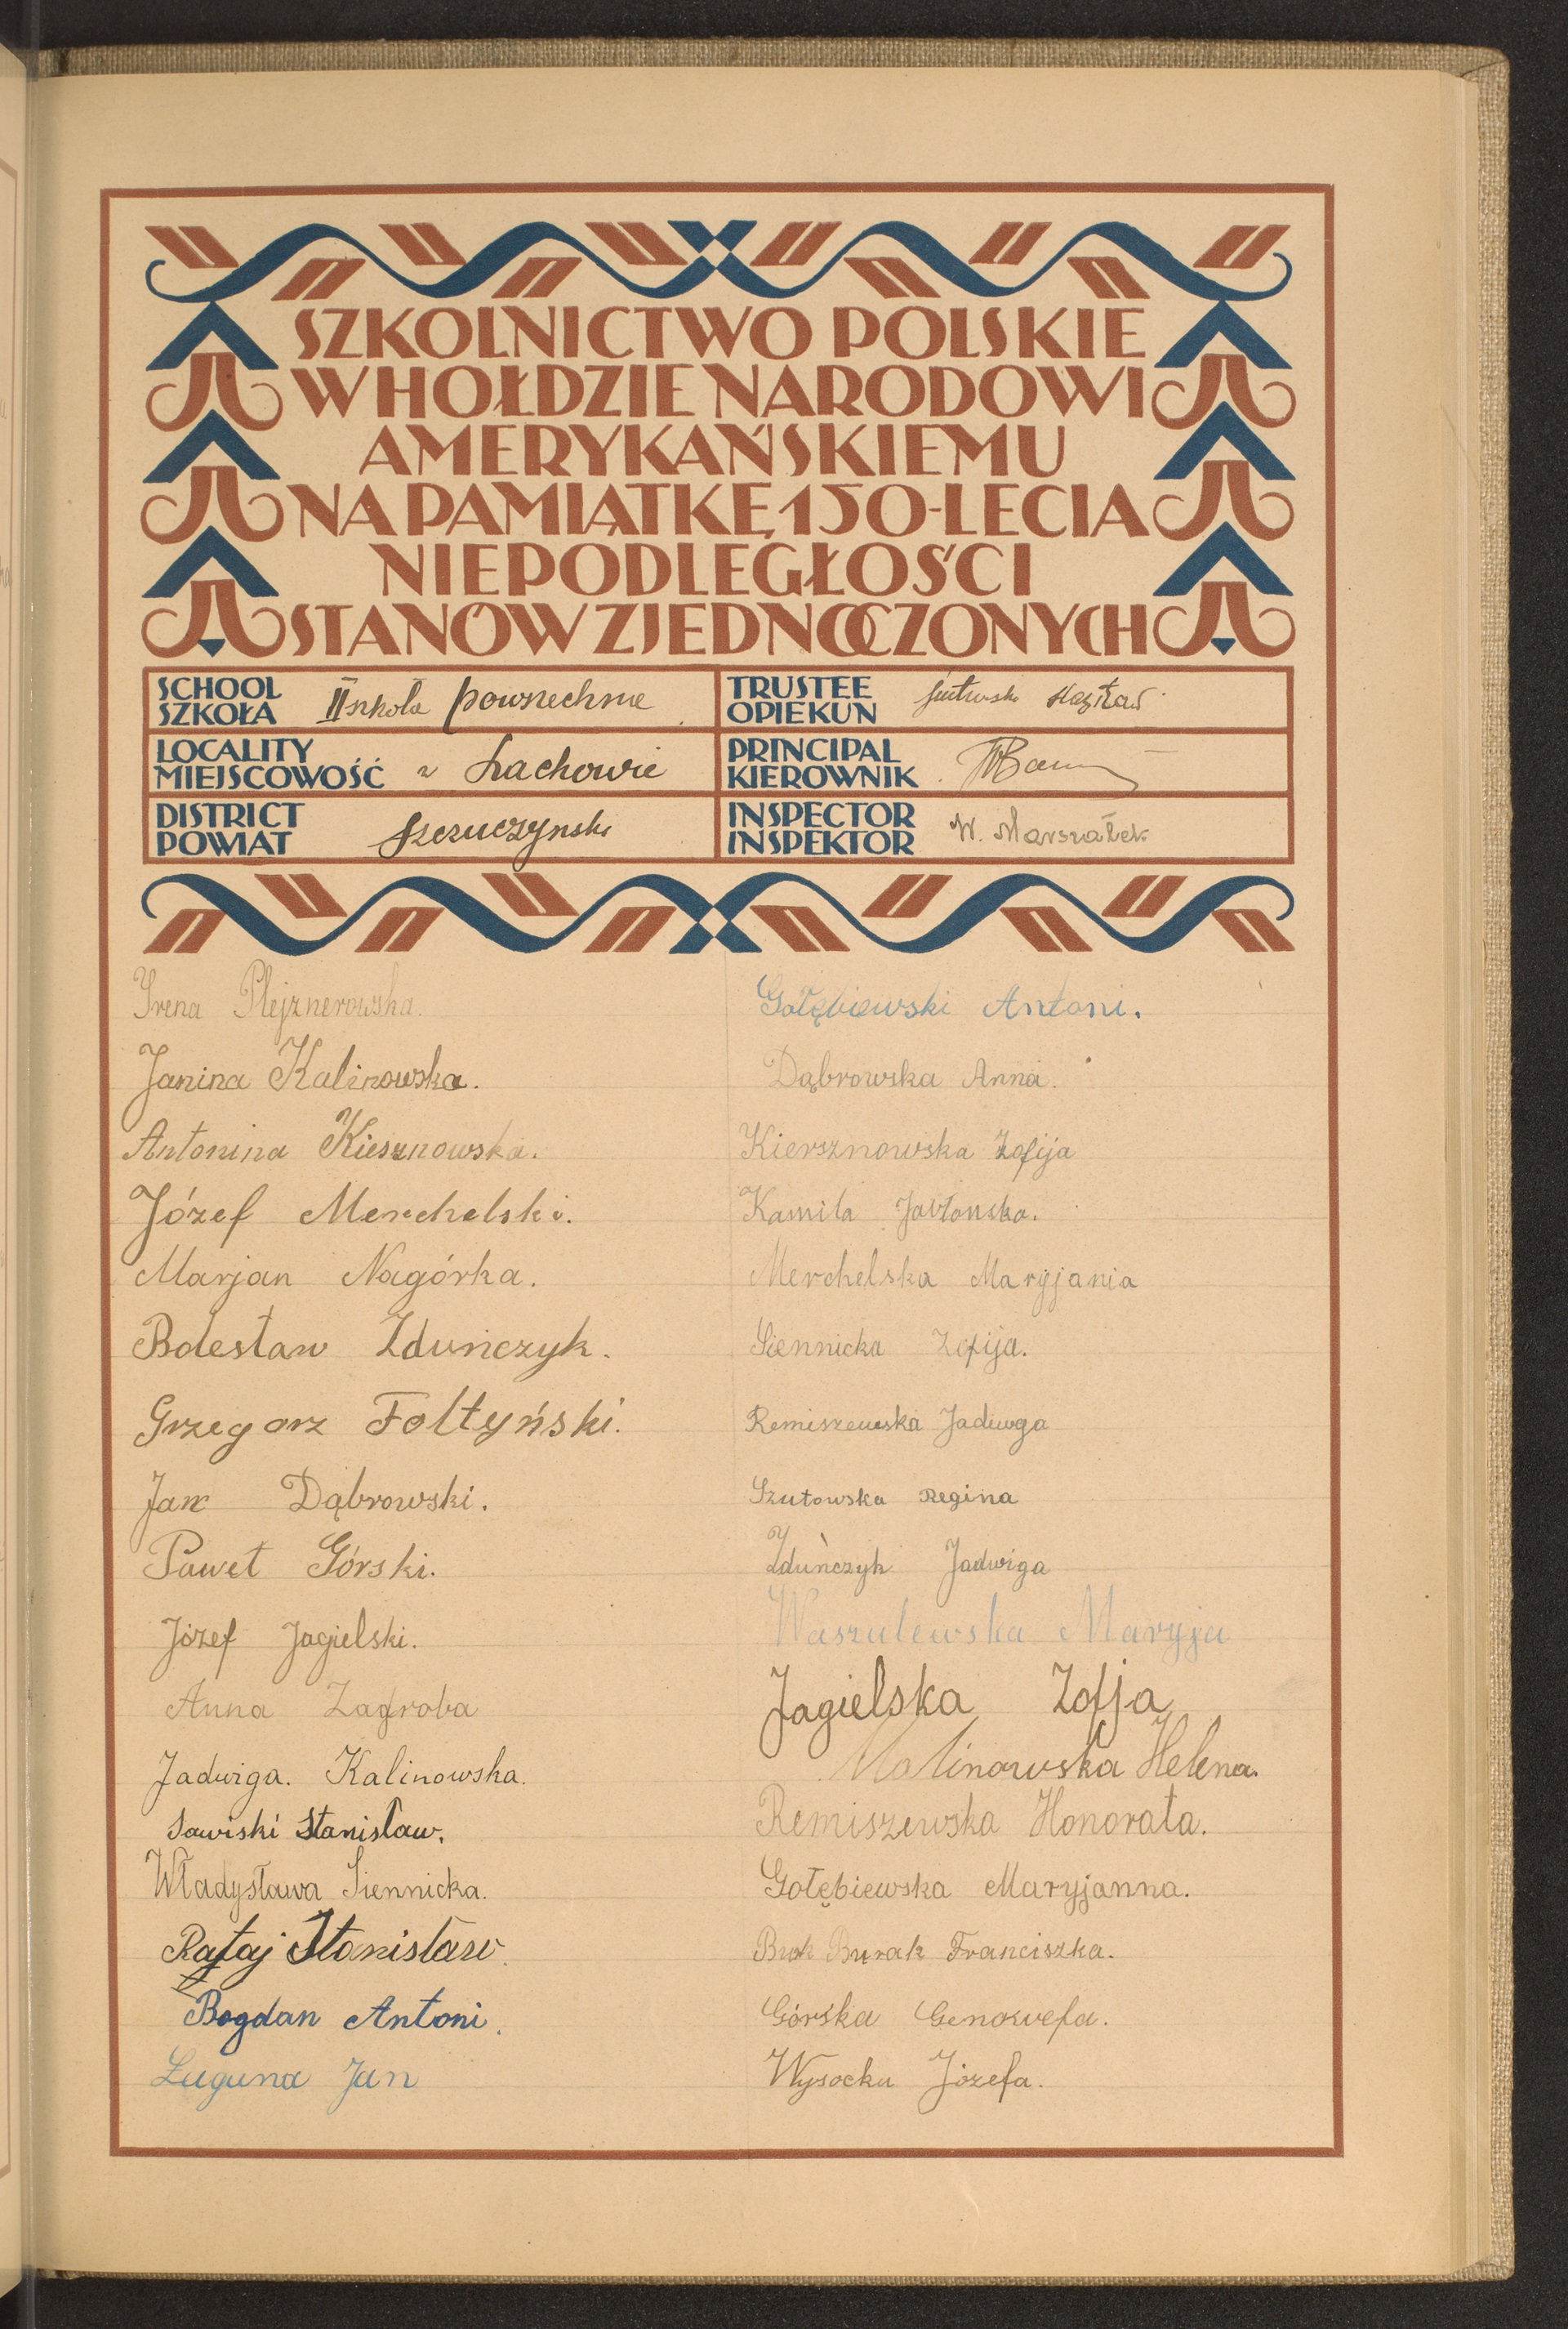 SZKOLNICTWO POLSKIE
W HOŁDZIE NARODOWI
AMERYKAŃSKIEMU
NA PAMIĄTKĘ 150-LECIA
NIEPODLEGŁOŚCI
STANÓW ZJEDNOCZONYCH
SCHOOL
SZKOŁA
II szkoła powszechna
TRUSTEE
OPIEKUN
LOCALITY
MIEJSCOWOŚĆ
w Lachowie
PRINCIPAL
KIEROWNIK
DISTRICT
POWIAT
Szczuczyński
INSPECTOR
INSPEKTOR
W. Marszałek
Irena Plejznerowska.
Janina Kalinowska.
Antonina Kiesznowska.
Józef Merchelski.
Marjan Nagórka.
Bolesław Zduńczyk.
Grzegorz Fołtyński.
Jan Dąbrowski.
Paweł Górski.
Józef Jagielski.
Anna Zagroba
Jadwiga. Kalinowska.
Sawiski Stanisław.
Władysława Siennicka.
Rataj Stanisław.
Bogdan Antoni.
Łaguna Jan
Gołębiewski Antoni.
Dąbrowska Anna.
Kiersznowska Zofija
Kamila Jabłonska.
Merchelska Maryjania
Siennicka Zofija.
Remiszewska Jadwga
Szutowska Regina
Zduńczyk Jadwiga
Waszulewska Maryja
Jagielska Zofja
Malinowska Helena.
Remiszewska Honorata.
Gołębiewska Maryjanna.
Burak Franciszka.
Górska Genowefa.
Wysocka Józefa.